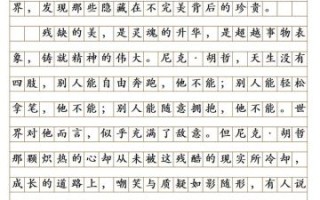 界，发现那些隐藏在不完美背后的珍贵。
残缺的美，是灵魂的升华，是超越事物表
象，铸就精神的伟大。尼克·胡哲，天生没有
四肢，别人能自由奔跑，他不能；别人能轻松
拿笔，他不能；别人能随意拥抱，他不能。世
界对他而言，似乎充满了敌意。但尼克·胡哲
那颗炽热的心却从未被这残酷的现实所冷却，
成长的道路上，嘲笑与质疑如影随形，有人说